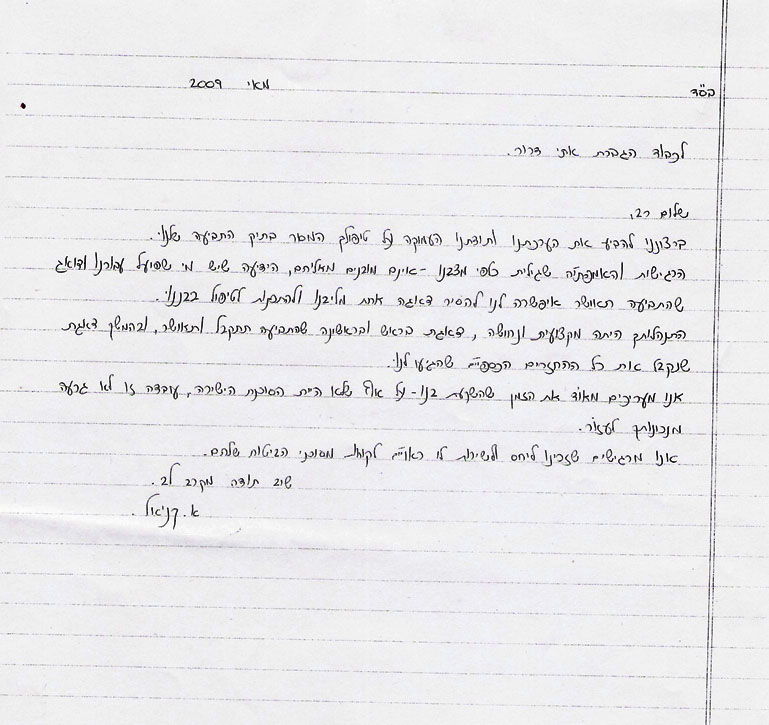 בס"ד
מאי 2009
לכבוד הגברת אתי דרור.
שלום רב,
ברצוננו להביע את הערכתנו ותודתנו העמוקה על טיפולך המסור בתיק התביעה שלנו.
הרגישות והאמפתיה שגילית כלפי מצבנו - אינם מובנים מאליהם, הידיעה שיש מי שפועל עבורנו ודואג
שהתביעה תאושר איפשרה לנו להסיר דאגה אחת מליבנו ולהתפנות לטיפול בבננו.
התנהלותך היתה מקצועית ונחושה, דאגת בראש ובראשונה שהתביעה תתקבל ותאושר, ובהמשך דאגת
שנקבל את כל ההחזרים הכספיים שהגיעו לנו.
אנו מעריכים מאוד את הזמן שהשקעת בנו - על אף שלא היית הסוכנת הישירה, עובדה זו לא גרעה
מנכונותך לעזור.
אנו מרגישים שזכינו ליחס ולשירות לו ראויים לקוחות מסוכני הביטוח שלהם.
שוב תודה מקרב לב.
א. קניאל.